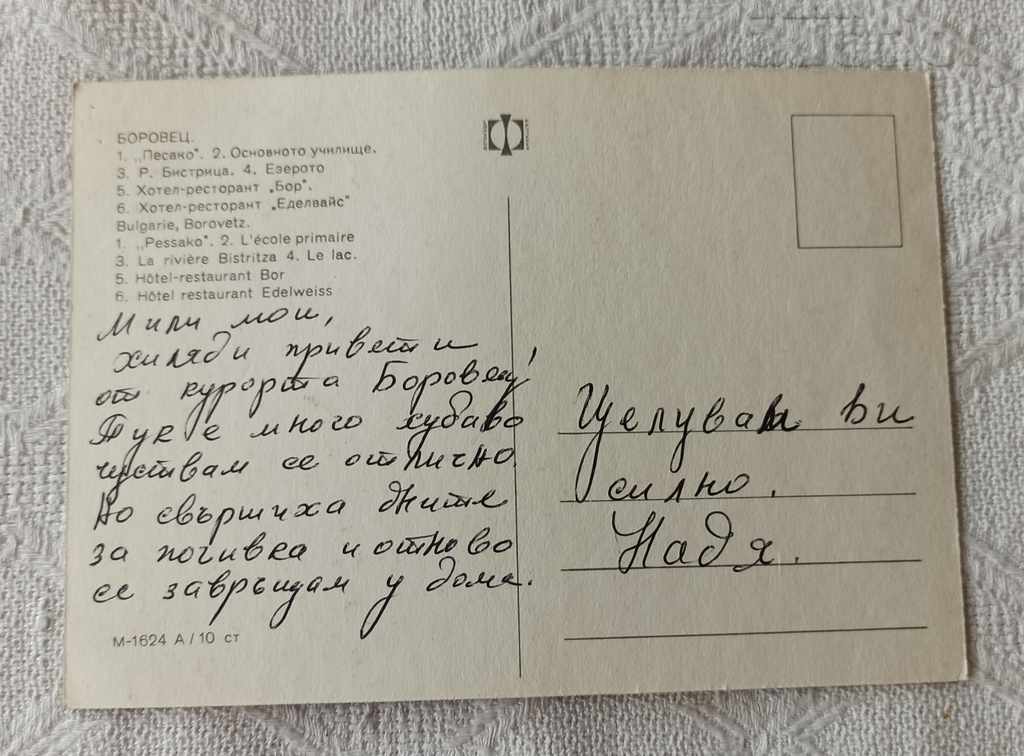 БОРОВЕЦ.
1. „Песако“. 2. Основното училище.
3. Р. Бистрица. 4. Езерото
5. Хотел-ресторант „Бор“.
6. Хотел-ресторант „Еделвайс“
Bulgarie, Borovetz.
1. „Pessako“. 2. L'école primaire
3. La rivière Bistritza 4. Le lac.
5. Hôtel-restaurant Bor
6. Hôtel restaurant Edelweiss
Мили мои,
хиляди привети
от курорта Боровец!
Тук е много хубаво
чуствам се отлично.
Но свършиха дните
за почивка и отново
се завръщам у дома.
М-1624 А/10 ст
Целувам ви
силно.
Надя.